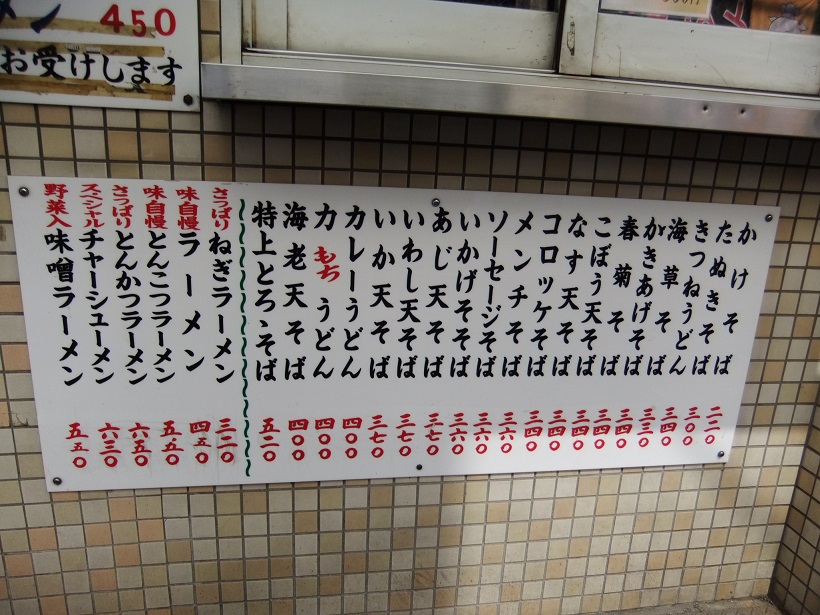 メン 450
お受けします
かけそば 二二〇
たぬきそば 三〇〇
きつねうどん 三四〇
海草そば 三三〇
かきあげそば 三四〇
春菊そば 三四〇
ごぼう天そば 三四〇
なす天そば 三四〇
コロッケそば 三四〇
メンチそば 三六〇
ソーセージそば 三六〇
いかげそそば 三六〇
あじ天そば 三七〇
いわし天そば 三七〇
いか天そば 三七〇
カレーうどん 四〇〇
力もちうどん 四〇〇
海老天そば 四〇〇
特上とろゝそば 五二〇
さっぱりねぎラーメン 三二〇
味自慢ラーメン 四五〇
味自慢とんこつラーメン 五五〇
さっぱりとんかつラーメン 六五〇
スペシャルチャーシューメン 六三〇
野菜入味噌ラーメン 五五〇